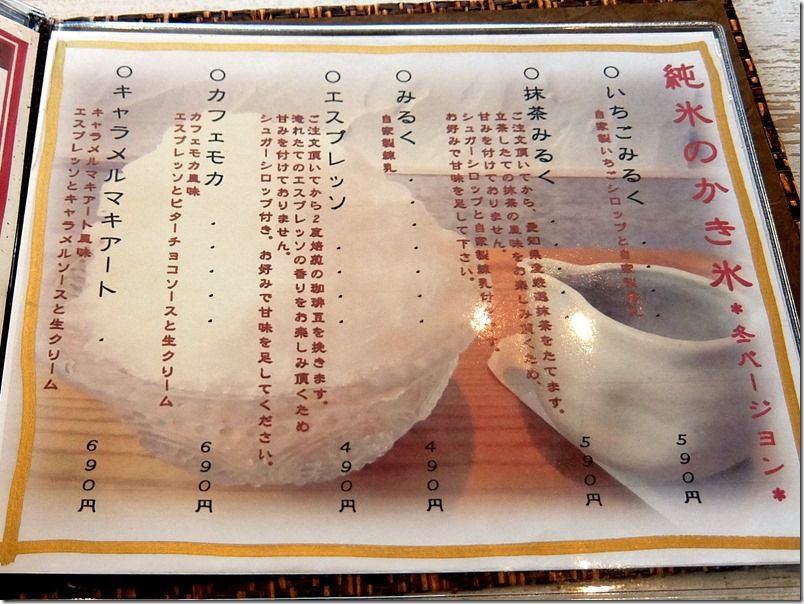 純氷のかき氷 *冬バージョン*
○いちごみるく・・・・・590円
自家製いちごシロップと自家製練乳
○抹茶みるく・・・・・590円
ご注文頂いてから、愛知県産厳選抹茶をたてます。
立茶したての抹茶の風味をお楽しみ頂くため、
甘みを付けておりません。
シュガーシロップと自家製練乳付きです。
お好みで甘味を足して下さい。
○みるく・・・・・490円
自家製練乳
○エスプレッソ・・・・490円
ご注文頂いてから2度焙煎の珈琲豆を挽きます。
淹れたてのエスプレッソの香りをお楽しみ頂くため
甘みを付けておりません。
シュガーシロップ付き。お好みで甘味を足してください。
○カフェモカ・・・・・690円
カフェモカ風味
エスプレッソとビターチョコソースと生クリーム
○キャラメルマキアート・690円
キャラメルマキアート風味
エスプレッソとキャラメルソースと生クリーム